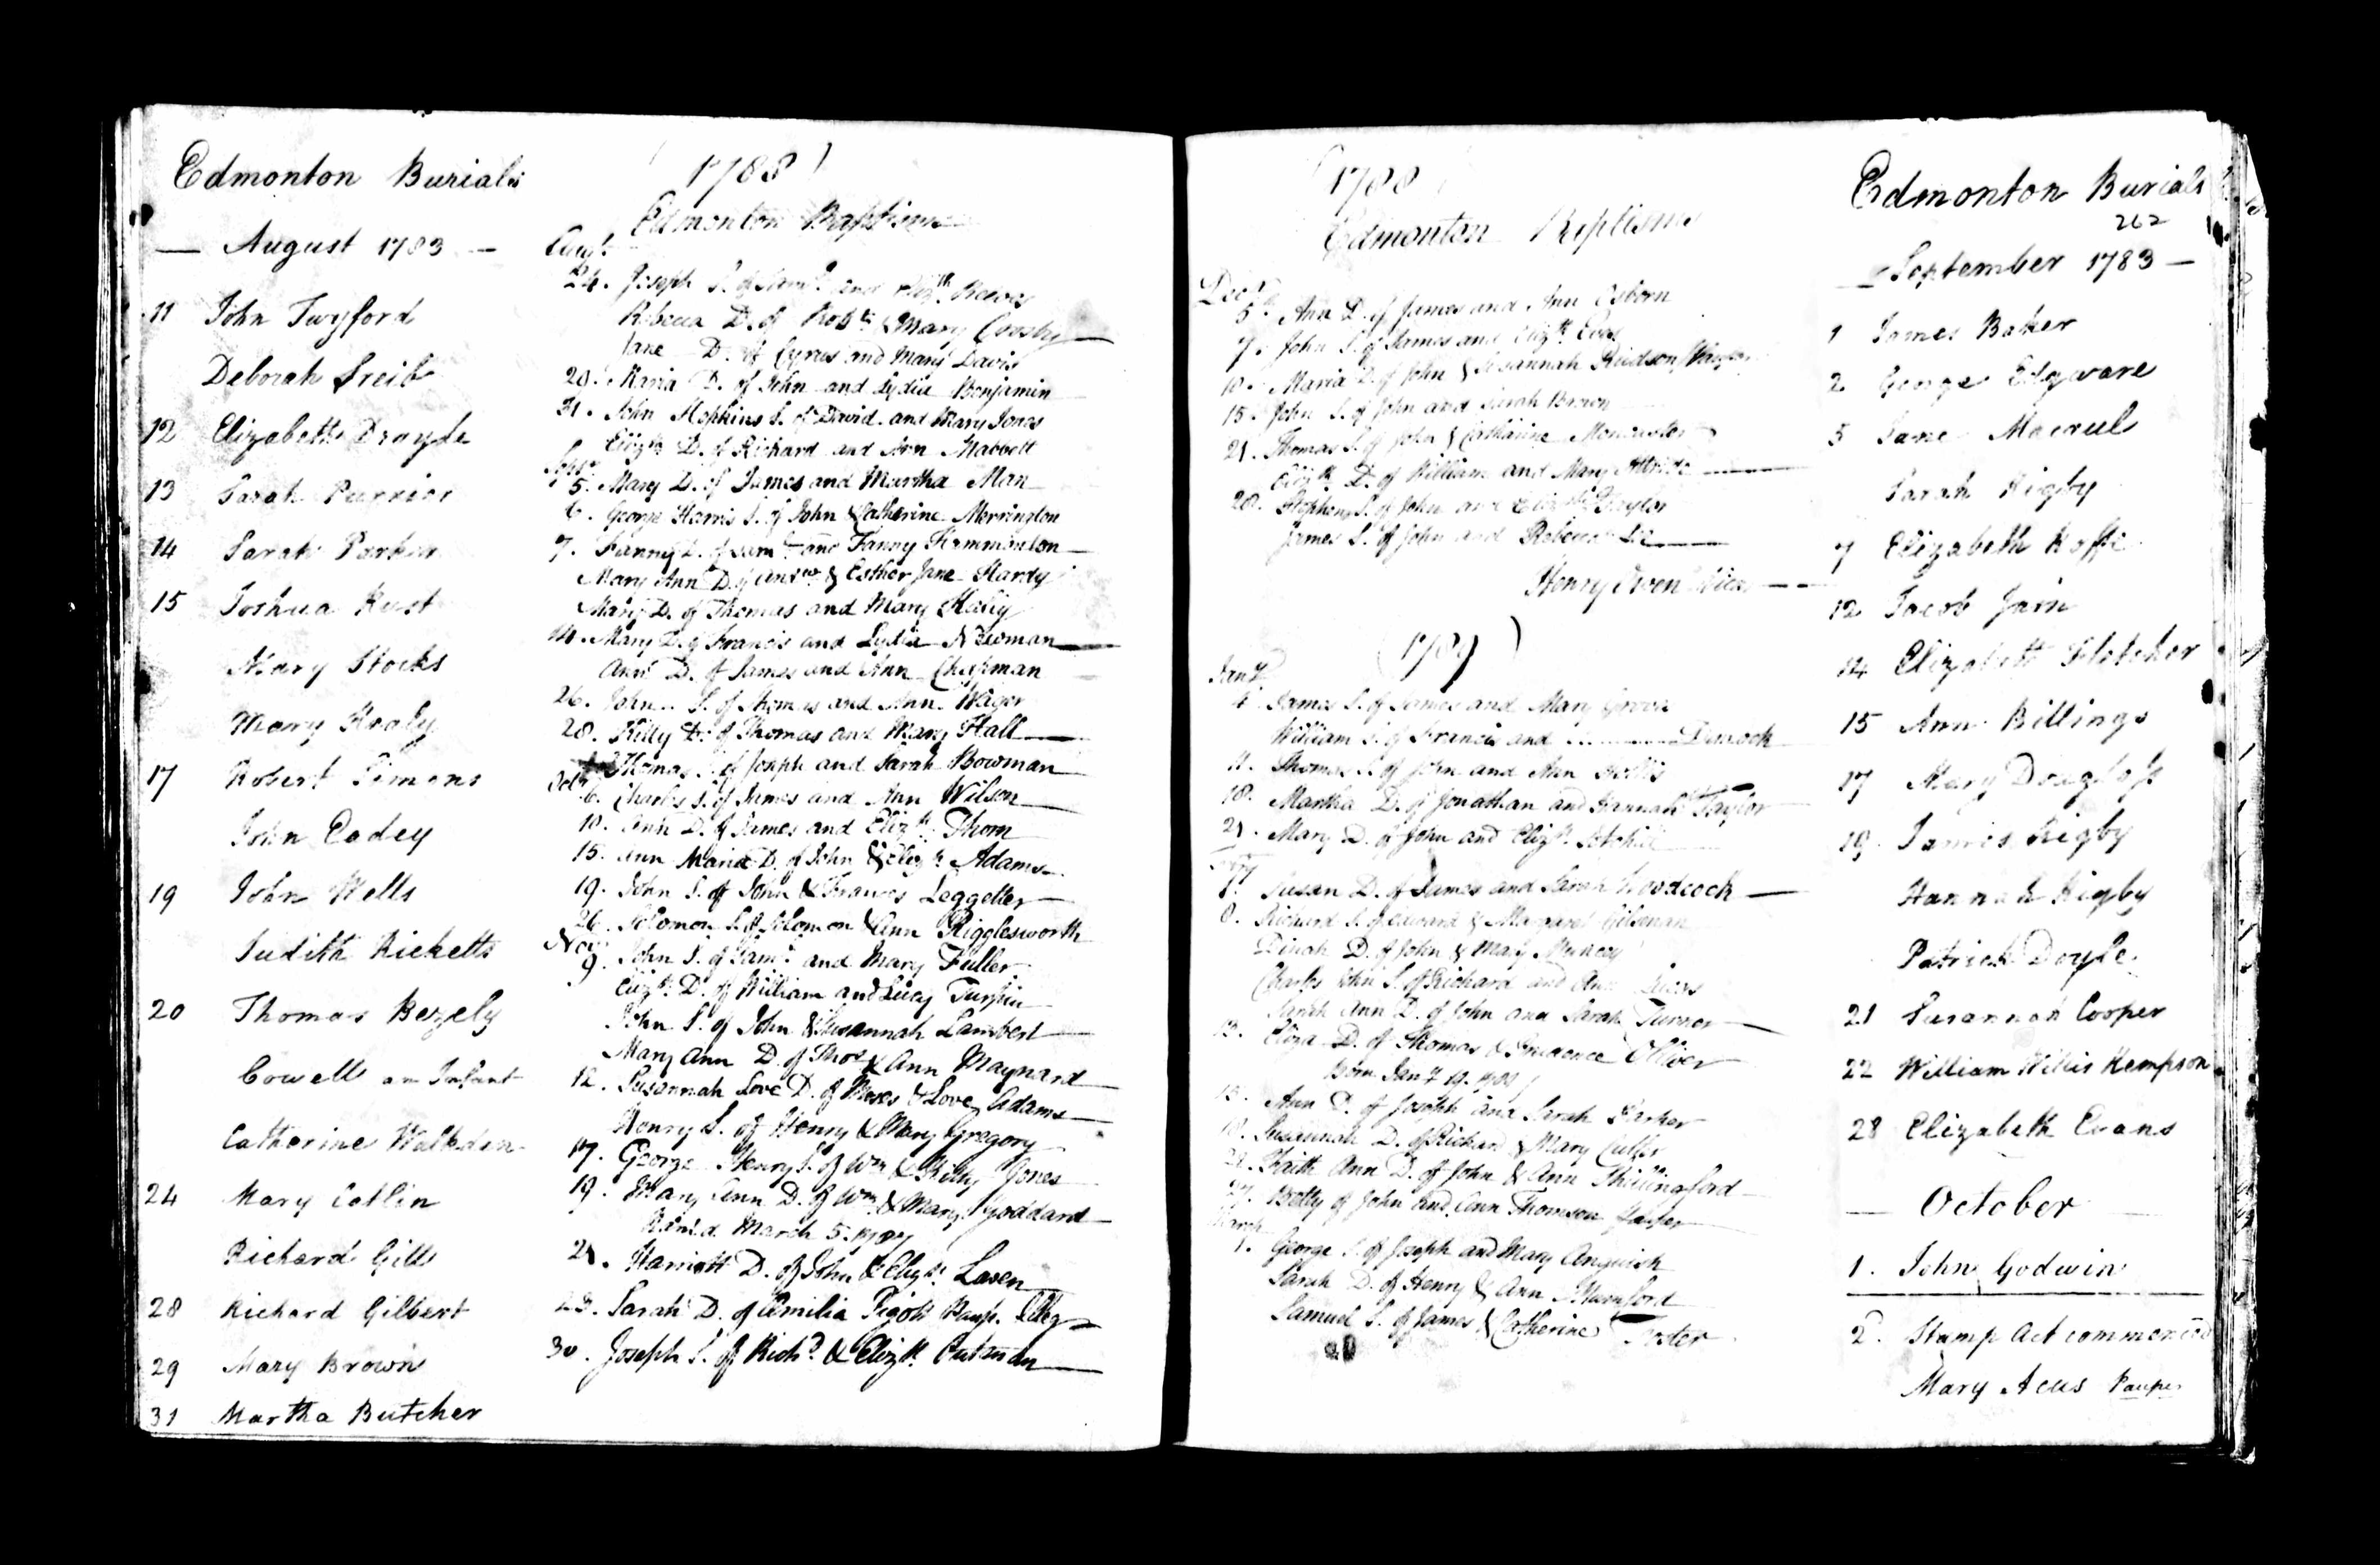 Edmonton Burials
— August 1783 —
11 John Twyford
Deborah
12 Elizabeth Drayde
13 Sarah Purrier
14 Sarah Parker
15 Joshua Rust
Mary Stocks
Mary Kealy
17 Robert Simons
John Eadey
19 John Wells
Judith Ricketts
20 Thomas Bezely
Cowell an Infant
Catherine Walkden
24 Mary Catlin
Richard Gills
28 Richard Gilbert
29 Mary Brown
31 Martha Butcher
(1788)
Edmonton Baptisms
Augt.
24. Joseph S. of Saml. and Elizth.
Rebecca D. of Robt. & Mary Crosby
Jane D. of Cyrus and Mary Davis
28. Maria D. of John and Lydia Benjamin
31. John Hopkins S. of David and Mary Jones
Elizth. D. of Richard and Ann Mabbott
Septr.
5. Mary D. of James and Martha Man
6. George Harris S. of John & Catherine Merrington
7. Fanny D. of Saml. and Fanny Hammonton
Mary Ann D. of Andw. & Esther Jane Hardy
Mary D. of Thomas and Mary
14. Mary D. of Francis and Lydia Newman
Ann D. of James and Ann Chapman
26. John S. of Thomas and Ann Wager
28. Kitty D. of Thomas and Mary Hall
Thomas S. of Joseph and Sarah Bowman
Octr.
6. Charles S. of James and Ann Wilson
10. Ann D. of James and Elizth. Thom
15. Ann Maria D. of John & Elizth. Adams
19. John S. of John & Frances Leggetter
26. Solomon S. of Solomon & Ann Rigglesworth
Novr.
9. John S. of Saml. and Mary Fuller
Elizth. D. of William and Lucy Turpin
John S. of John & Susannah Lambert
Mary Ann D. of Thos. & Ann Maynard
12. Susannah Love D. of Moses & Love Adams
Henry S. of Henry & Mary Gregory
17. George Henry S. of Wm. & Kitty Jones
19. Mary Ann D. of Wm. & Mary Goddard
March 5. 1787
21. Harriott D. of John & Elizth. Laven
23. Sarah D. of Amilia Pigott Paup. Illeg
30. Joseph S. of Richd. & Elizth. Outman
1788
Edmonton Baptisms
Decr.
5. Ann D. of James and Ann Osborn
7. John S. of James and Elizth.
10. Maria D. of John & Susannah
15. John S. of John and Sarah Brown
21. Thomas S. of John & Catharine Moncaster
Elizth. D. of William and Mary Attride
28. Stephen S. of John and Elizth. Taylor
James S. of John and Rebecca
Henry Owen
(1789)
Jany.
4. James S. of James and Mary
William S. of Francis and ......... Dimock
11. Thomas S. of John and Ann Hollis
18. Martha D. of Jonathan and Hannah Taylor
21. Mary D. of John and Elizth.
1. Susan D. of James and Sarah Woodcock
8. Richard S. of Edward & Margaret
Dinah D. of John & Mary
Charles John S. of Richard and Ann
Sarah Ann D. of John and Sarah Turner
13. Eliza D. of Thomas & Prudence Olliver
born Jany. 19.
15. Ann D. of Joseph and Sarah Parker
18. Susannah D. of Richard & Mary Cutler
22. Faith Ann D. of John & Ann Shillingford
Betty of John and Ann Thomson Pauper
March
1. George S. of Joseph and Mary Anguish
Sarah D. of Henry & Ann Mumford
Samuel S. of James & Catherine Foster
Edmonton Burials
262
— September 1783 —
1 James Baker
2 George Edgware
5 Jane Macaul
Sarah Rigby
7 Elizabeth Roffe
12 Jacob Jain
14 Elizabeth Fletcher
15 Ann Billings
17 Mary Douglass
19 James Rigby
Hannah Rigby
Patrick Doyle
21 Susannah Cooper
22 William Willis Kempson
28 Elizabeth Evans
— October —
1. John Godwin
2. Stamp Act commenced
Mary Acus Pauper